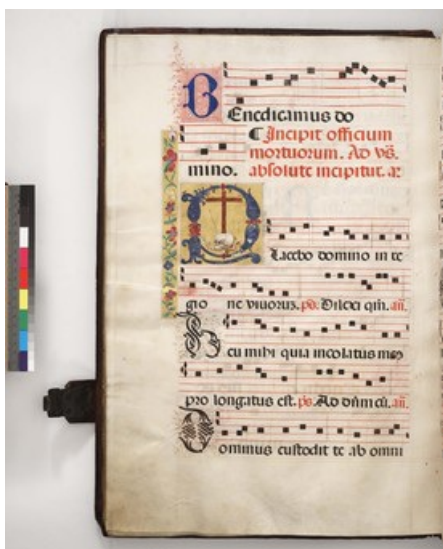 Benedicamus do
¶ Incipit officium
mortuorum. Ad vs̃.
mino. absolute incipitur. añ
Placebo domino in re
gio ne viuorum. ps̃. Dilexi qm̃. añ.
Heu mihi quia incolatus meus
pro longatus est. ps̃. Ad dñm cũ. añ.
Dominus custodit te ab omni